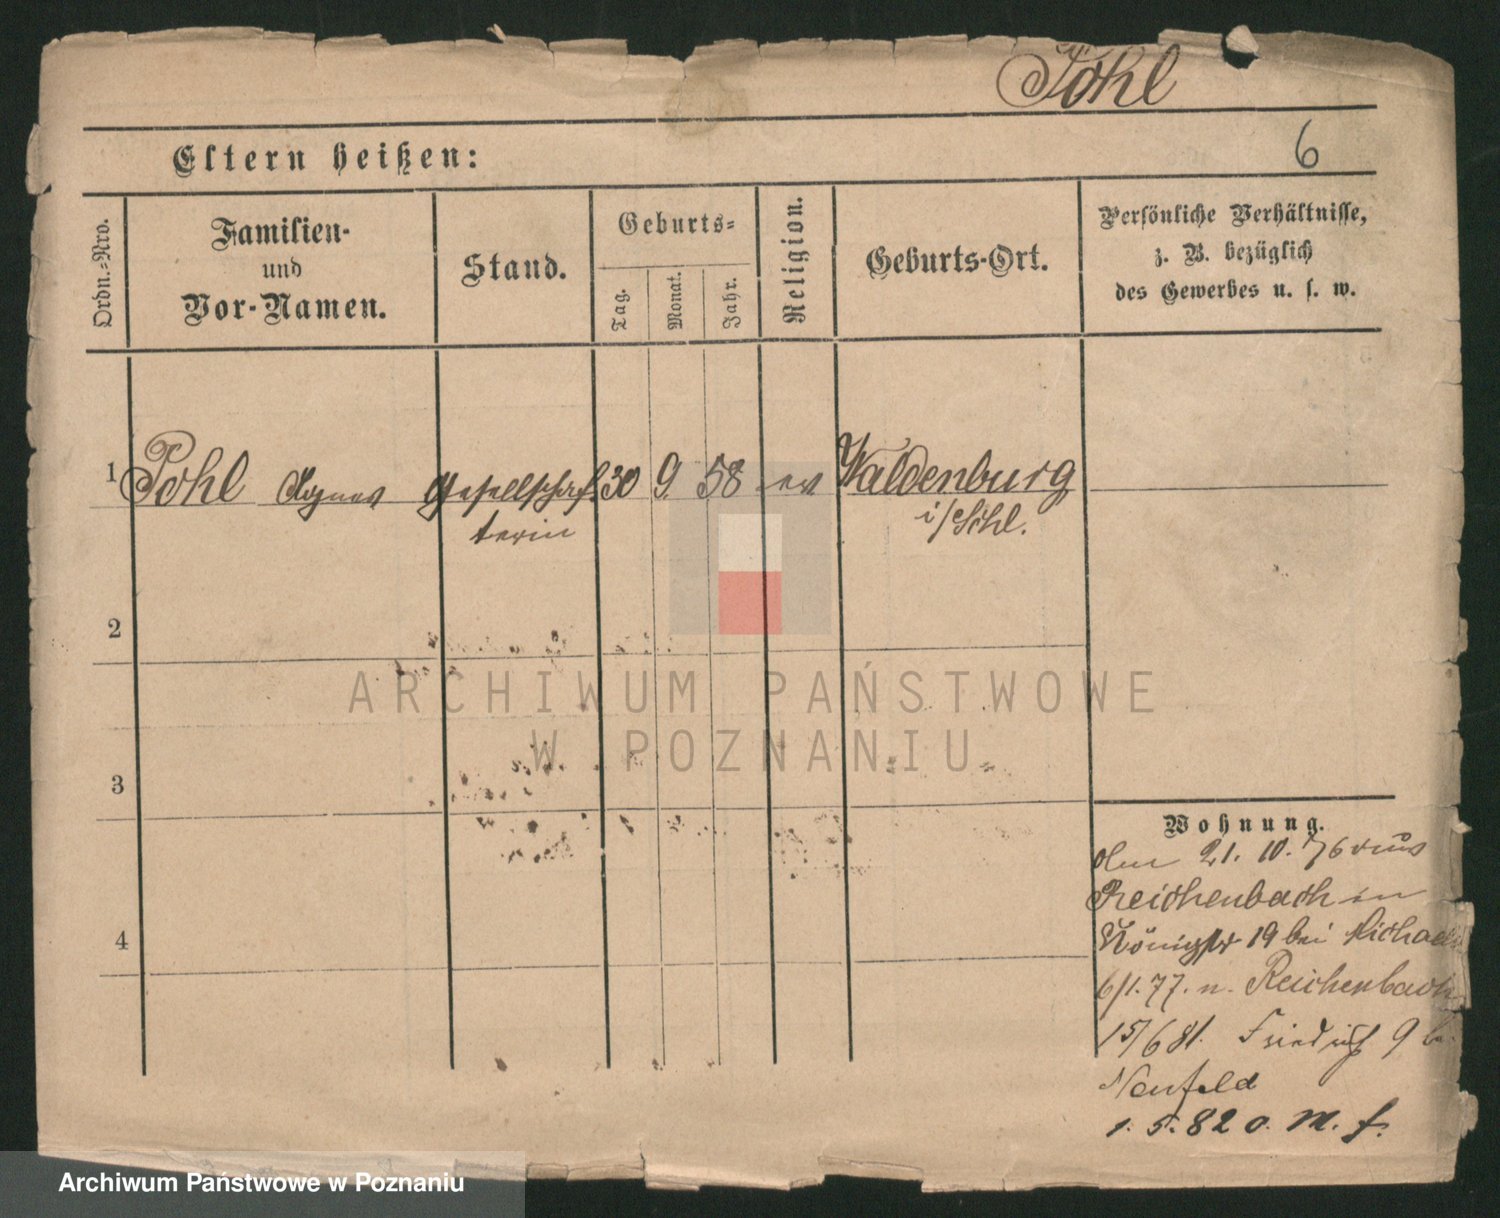 Pohl
6
Eltern heißen:
Ordn.-Nro.
Familien-
und
Vor-Namen.
Stand.
Geburts-
Tag.
Monat.
Jahr.
Religion.
Geburts-Ort.
Persönliche Verhältnisse,
z. B. bezüglich
des Gewerbes u. s. w.
1 Pohl Agnes Gesellschaf- 30 9. 58 ev Waldenburg
terin i/Schl.
2
3
4
Wohnung.
21. 10. 76 aus
Reichenbach in
Königstr 19 bei Michaeli
6/1. 77. n. Reichenbach
15/6 81. Friedrich 9 bei
Neufeld
1. 5. 82 o. M. f.
ARCHIWUM PAŃSTWOWE
W POZNANIU
Archiwum Państwowe w Poznaniu